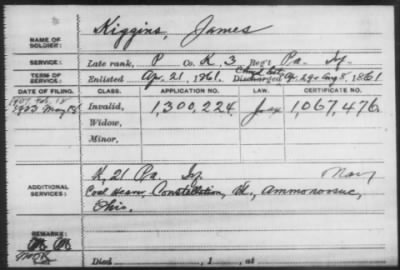 NAME OF SOLDIER: Kiggins, James
SERVICE: Late rank, P Co. K, 3 Reg't Pa. Inf.
TERM OF SERVICE: Enlisted Ap. 21, 1861. Discharged Aug 8, 1861
DATE OF FILING. CLASS. APPLICATION NO. LAW. CERTIFICATE NO.
1903 May 15 Invalid, 1,300,224 1,067,476
Widow,
Minor,
K, 21 Pa. Inf. Navy
ADDITIONAL SERVICES: Constellation, Ammonoosuc,
Ohio.
REMARKS:
Died , 1 , at